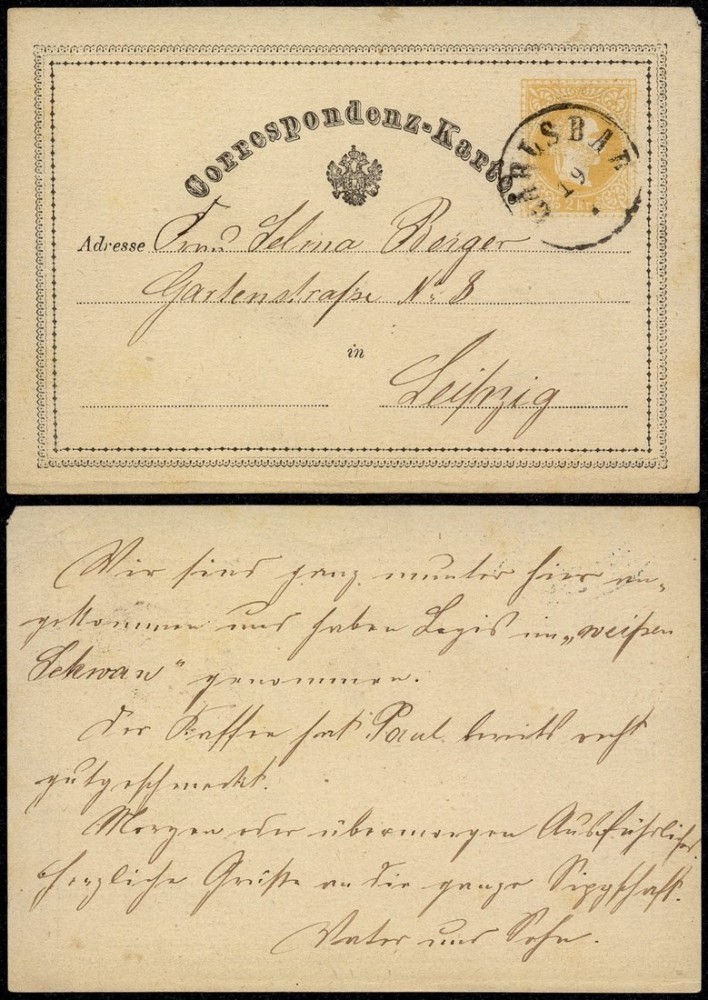 Correspondenz-Karte
CARLSBAD
19
Adresse Frau Selma Berger
Gartenstraße No 8
in
Leipzig
Wir sind ganz munter hier an-
gekommen und haben Logis im „weißen
Schwan" genommen.
Der Kaffee hat Paul bereits recht
gutgeschmeckt.
Morgen oder übermorgen Ausführlicher.
Herzliche Grüße an die ganze Sippschaft.
Vater und Sohn.